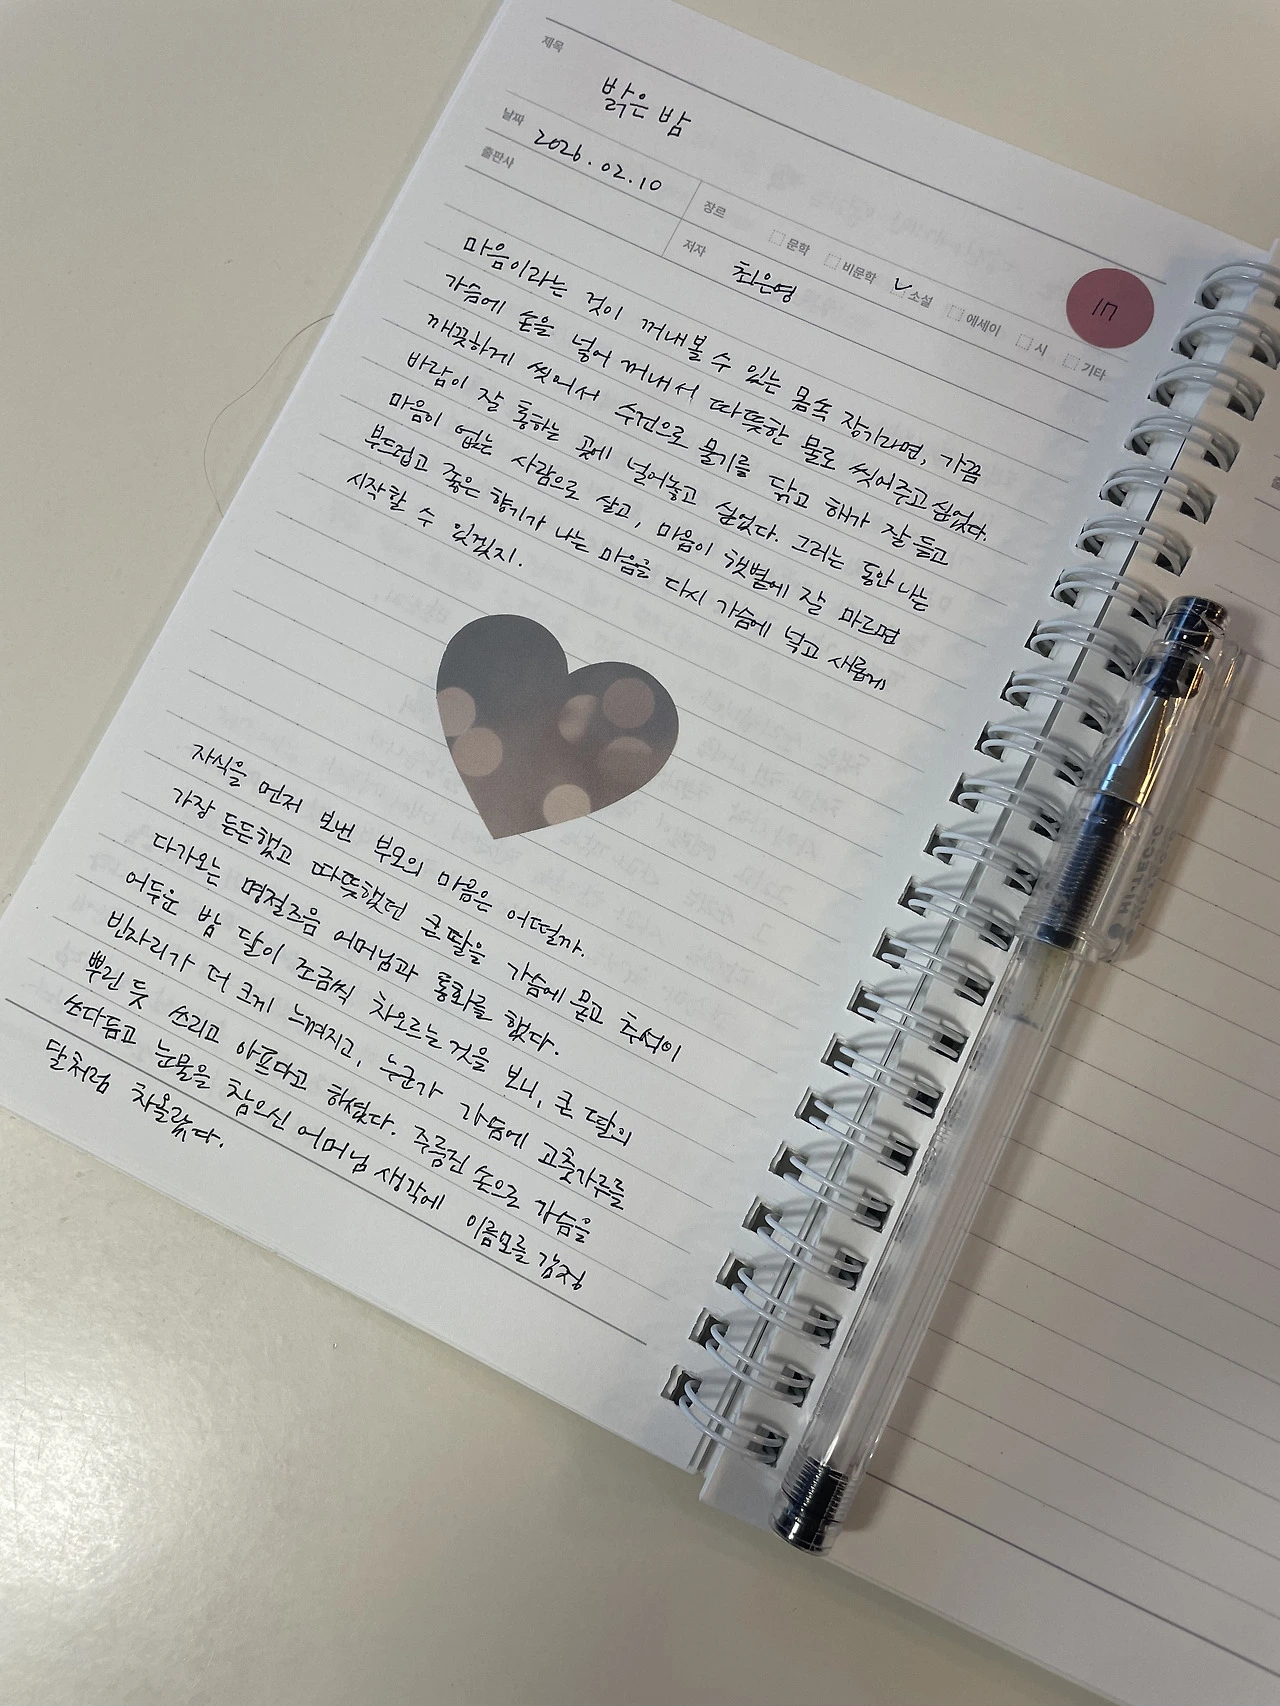 제목
밝은 밤
날짜 2026.02.10
장르 문학 비문학 소설 에세이 시 기타
출판사
저자 최은영
17
마음이라는 것이 꺼내볼 수 있는 몸속 장기라면, 가끔
가슴에 손을 넣어 꺼내서 따뜻한 물로 씻어주고 싶었다.
깨끗하게 씻어서 수건으로 물기를 닦고 해가 잘 들고
바람이 잘 통하는 곳에 널어놓고 싶었다. 그러는 동안 나는
마음이 없는 사람으로 살고, 마음이 햇볕에 잘 마르면
부드럽고 좋은 향기가 나는 마음을 다시 가슴에 넣고 새롭게
시작할 수 있겠지.
자식을 먼저 보낸 부모의 마음은 어떨까.
가장 든든했고 따뜻했던 큰 딸을 가슴에 묻고 추석이
다가오는 명절즈음 어머님과 통화를 했다.
어두운 밤 달이 조금씩 차오르는 것을 보니, 큰 딸의
빈자리가 더 크게 느껴지고, 누군가 가슴에 고춧가루를
뿌린 듯 쓰리고 아프다고 하셨다. 주름진 손으로 가슴을
쓰다듬고 눈물을 참으신 어머님 생각에 이름모를 감정
달처럼 차올랐다.